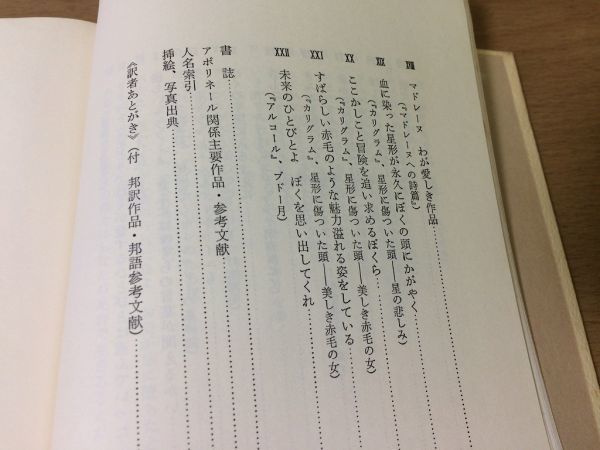 XVIII マドレーヌ わが愛しき作品
(『マドレーヌへの詩篇』)
XIX 血に染った星形が永久にぼくの頭にかがやく
(『カリグラム』、星形に傷ついた頭――星の悲しみ)
XX ここかしこと冒険を追い求めるぼくら
(『カリグラム』、星形に傷ついた頭――美しき赤毛の女)
XXI すばらしい赤毛のような魅力溢れる姿をしている
(『カリグラム』、星形に傷ついた頭――美しき赤毛の女)
XXII 未来のひとびとよ ぼくを思い出してくれ
(『アルコール』、ブドー月)
書誌
アポリネール関係主要作品・参考文献
人名索引
挿絵、写真出典
《訳者あとがき》(付 邦訳作品・邦語参考文献)